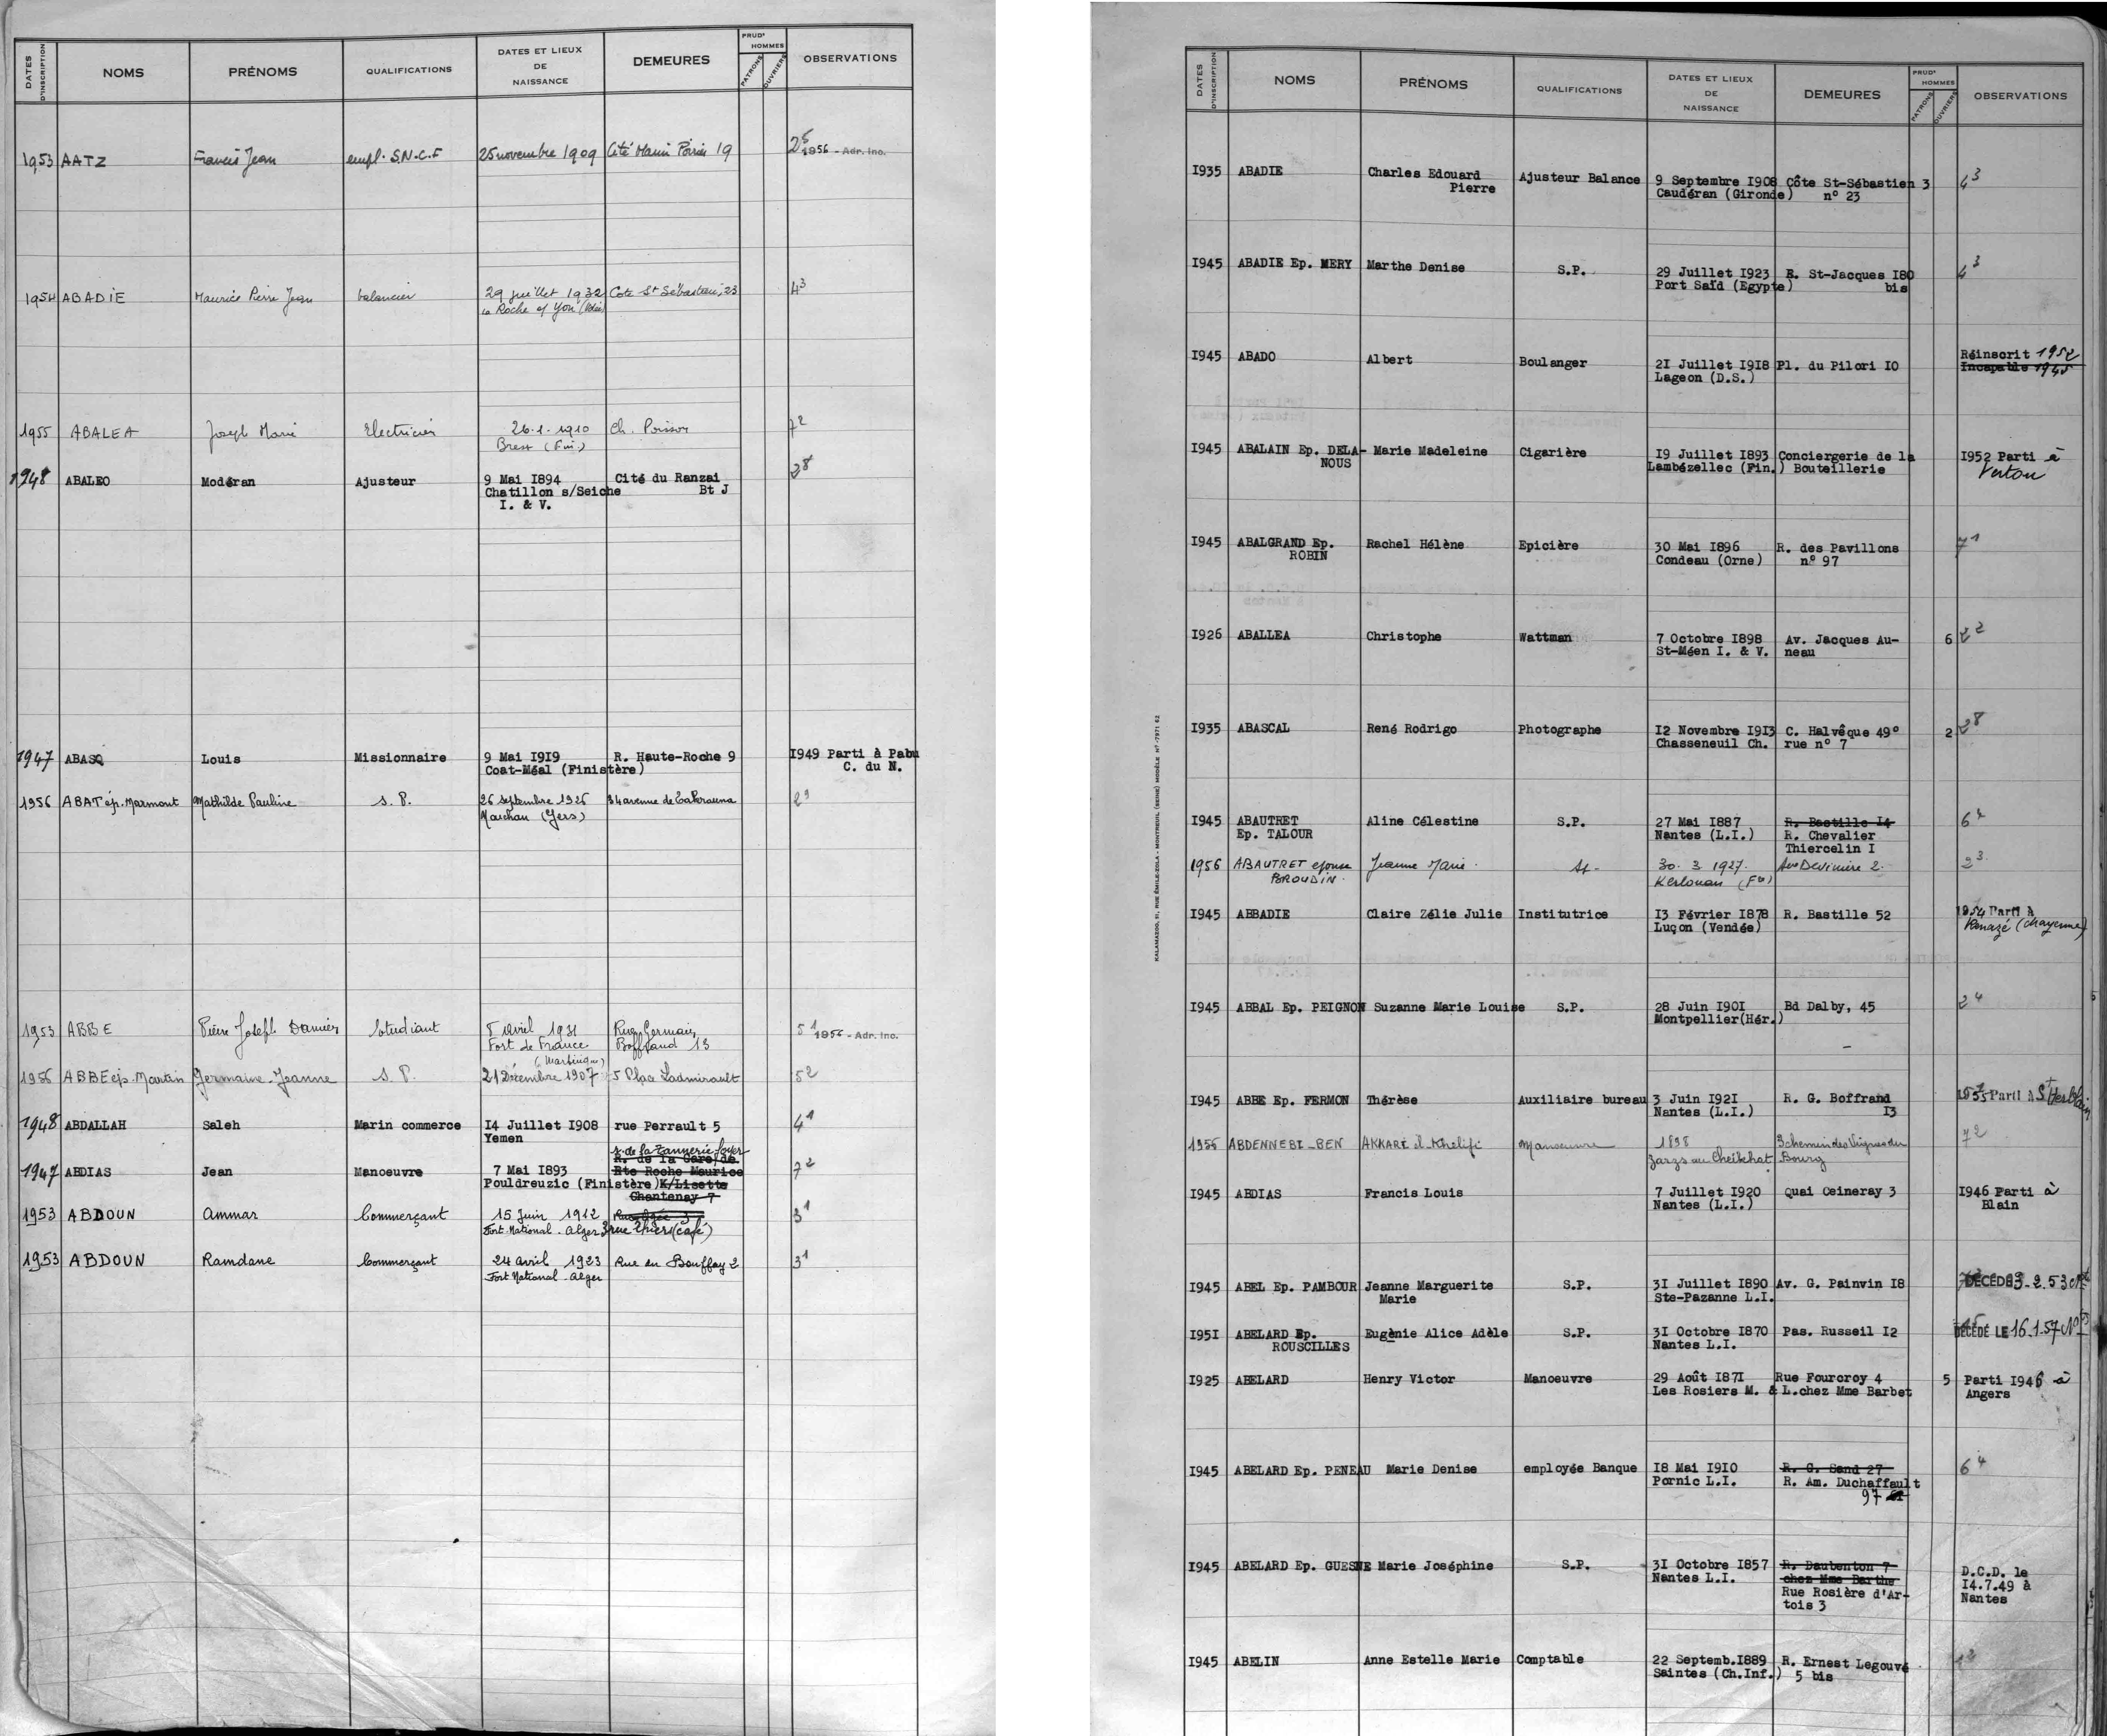 DATES D'INSCRIPTION NOMS PRÉNOMS QUALIFICATIONS DATES ET LIEUX DE NAISSANCE DEMEURES PRUD' HOMMES PATRONS OUVRIERS OBSERVATIONS
1953 AATZ Francis Jean empl. S.N.C.F 25 novembre 1909 Cité 19 1956 - Adr. Inc.
1954 ABADIE Maurice Pierre Jean balancier 29 juillet 1932 Cote St Sébastien, 23 4 3
la Roche s/ Yon (Vdée)
1955 ABALEA Joseph Marie Electricien 26.1.1910 Ch. Poisson 7 2
Brest (Fin.)
1948 ABALEO Modéran Ajusteur 9 Mai I894 Cité du Ranzai 2 8
Chatillon s/Seiche Bt J
I. & V.
1947 ABASQ Louis Missionnaire 9 Mai I9I9 R. Haute-Roche 9 I949 Parti à Pabu
Coat-Méal (Finistère) C. du N.
1956 ABAT ép. Marmont Mathilde Pauline S. P. 26 septembre 1926 34 avenue de 2 9
(Gers)
1953 ABBE Pierre Joseph Damien Etudiant 8 Avril 1931 Rue Germain 5 1 1956 - Adr. Inc.
Fort de France Boffrand 13
(Martinique)
1956 ABBE ép. Martin Germaine-Jeanne S. P. 21 Décembre 1907 5 Place Ladmirault 5 2
1948 ABDALLAH Saleh Marin commerce I4 Juillet I908 rue Perrault 5 4 1
Yemen
r. de la Tannerie foyer
R. de la Gare de
1947 ABDIAS Jean Manoeuvre 7 Mai I893 Rte Roche Maurice 7 2
Pouldreuzic (Finistère) K/Lisette
Chantenay 7
1953 ABDOUN Ammar Commerçant 15 Juin 1912 3 1
Fort-National - Alger 3 rue Thiers (café)
1953 ABDOUN Ramdane Commerçant 24 Avril 1923 Rue du Bouffay 2 3 1
Fort National - Alger
DATES D'INSCRIPTION NOMS PRÉNOMS QUALIFICATIONS DATES ET LIEUX DE NAISSANCE DEMEURES PRUD' HOMMES PATRONS OUVRIERS OBSERVATIONS
I935 ABADIE Charles Edouard Ajusteur Balance 9 Septembre I908 Côte St-Sébastien 3 4 3
Pierre Caudéran (Gironde) n° 23
I945 ABADIE Ep. MERY Marthe Denise S.P. 29 Juillet I923 R. St-Jacques I80 4 3
Port Saïd (Egypte) bis
I945 ABADO Albert Boulanger 2I Juillet I9I8 Pl. du Pilori IO Réinscrit 1952
Lageon (D.S.) Incapable 1945
I945 ABALAIN Ep. DELA- Marie Madeleine Cigarière I9 Juillet I893 Conciergerie de la I952 Parti à
NOUS Lambézellec (Fin.) Bouteillerie Vertou
I945 ABALGRAND Ep. Rachel Hélène Epicière 30 Mai I896 R. des Pavillons 7 1
ROBIN Condeau (Orne) n° 97
I926 ABALLEA Christophe Wattman 7 Octobre I898 Av. Jacques Au- 6 2 2
St-Méen I. & V. neau
I935 ABASCAL René Rodrigo Photographe I2 Novembre I9I3 C. Halvêque 49° 2 2 8
Chasseneuil Ch. rue n° 7
I945 ABAUTRET Aline Célestine S.P. 27 Mai I887 R. Bastille I4 6 4
Ep. TALOUR Nantes (L.I.) R. Chevalier
Thiercelin I
1956 ABAUTRET epouse Jeanne Marie 30. 3 1927. Ave Devinière 2. 2 3
BROUDIN. Kerlouan (Fre)
I945 ABBADIE Claire Zélie Julie Institutrice I3 Février I878 R. Bastille 52 1954 Parti à
Luçon (Vendée) Renazé (Mayenne)
I945 ABBAL Ep. PEIGNON Suzanne Marie Louise S.P. 28 Juin I90I Bd Dalby, 45 2 4
Montpellier(Hér.)
I945 ABBE Ep. FERMON Thérèse Auxiliaire bureau 3 Juin I92I R. G. Boffrand Parti à St Herblain
Nantes (L.I.) I3
1956 ABDENNEBI-BEN AKKARI el-Khelifi Manoeuvre 1898 3 chemin des Vignes du 7 2
Zarzs au Cheikhat Bourg
I945 ABDIAS Francis Louis 7 Juillet I920 Quai Ceineray 3 I946 Parti à
Nantes (L.I.) Blain
I945 ABEL Ep. PAMBOUR Jeanne Marguerite S.P. 3I Juillet I890 Av. G. Painvin I8 DÉCÉDÉ 3-2.53
Marie Ste-Pazanne L.I.
I95I ABELARD Ep. Eugènie Alice Adèle S.P. 3I Octobre I870 Pas. Russeil I2 DÉCÉDÉ LE 16.1.57
ROUSCILLES Nantes L.I.
I925 ABELARD Henry Victor Manoeuvre 29 Août I87I Rue Fourcroy 4 5 Parti I946 à
Les Rosiers M. & L. chez Mme Barbet Angers
I945 ABELARD Ep. PENEAU Marie Denise employée Banque I8 Mai I9I0 R. G. Sand 27 6 4
Pornic L.I. R. Am. Duchaffault
97
I945 ABELARD Ep. GUESNE Marie Joséphine S.P. 3I Octobre I857 R. Daubenton 7 D.C.D. le
Nantes L.I. chez Mme Barthe I4.7.49 à
Rue Rosière d'Ar- Nantes
tois 3
I945 ABELIN Anne Estelle Marie Comptable 22 Septemb.I889 R. Ernest Legouvé
Saintes (Ch.Inf.) 5 bis
KALAMAZOO, 51, RUE ÉMILE-ZOLA - MONTREUIL (SEINE) MODÈLE N° 7971 62